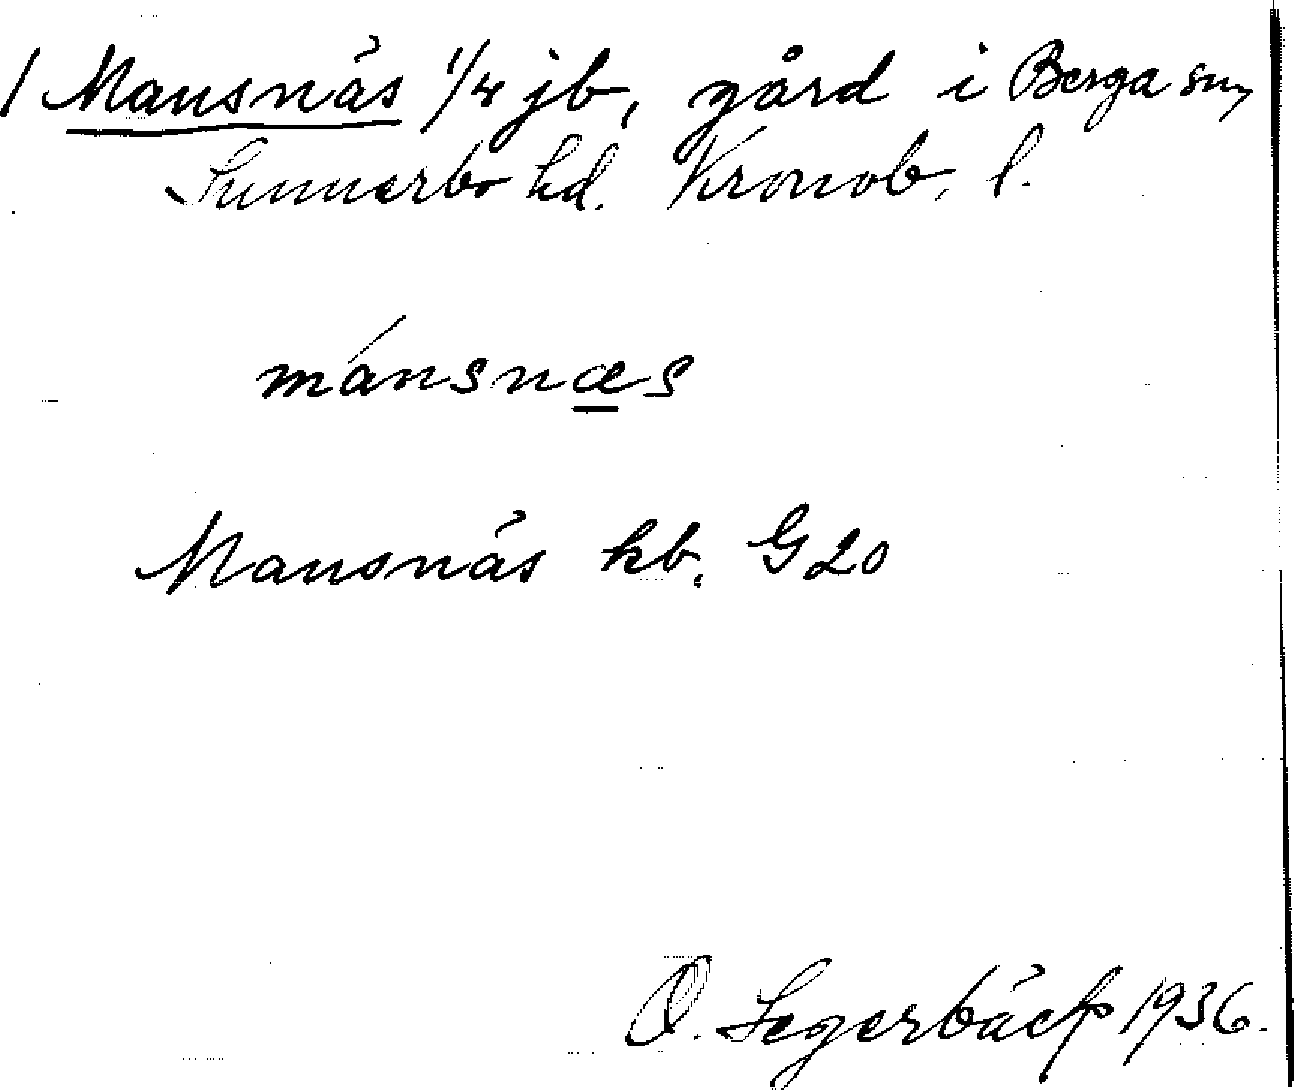 / Mansnäs 1/4 jb, gård i Berga sn,
Sunnerbo hd. Kronob. l.
mánsnæs
Mansnäs kb. G20
O. Segerbäck 1936.